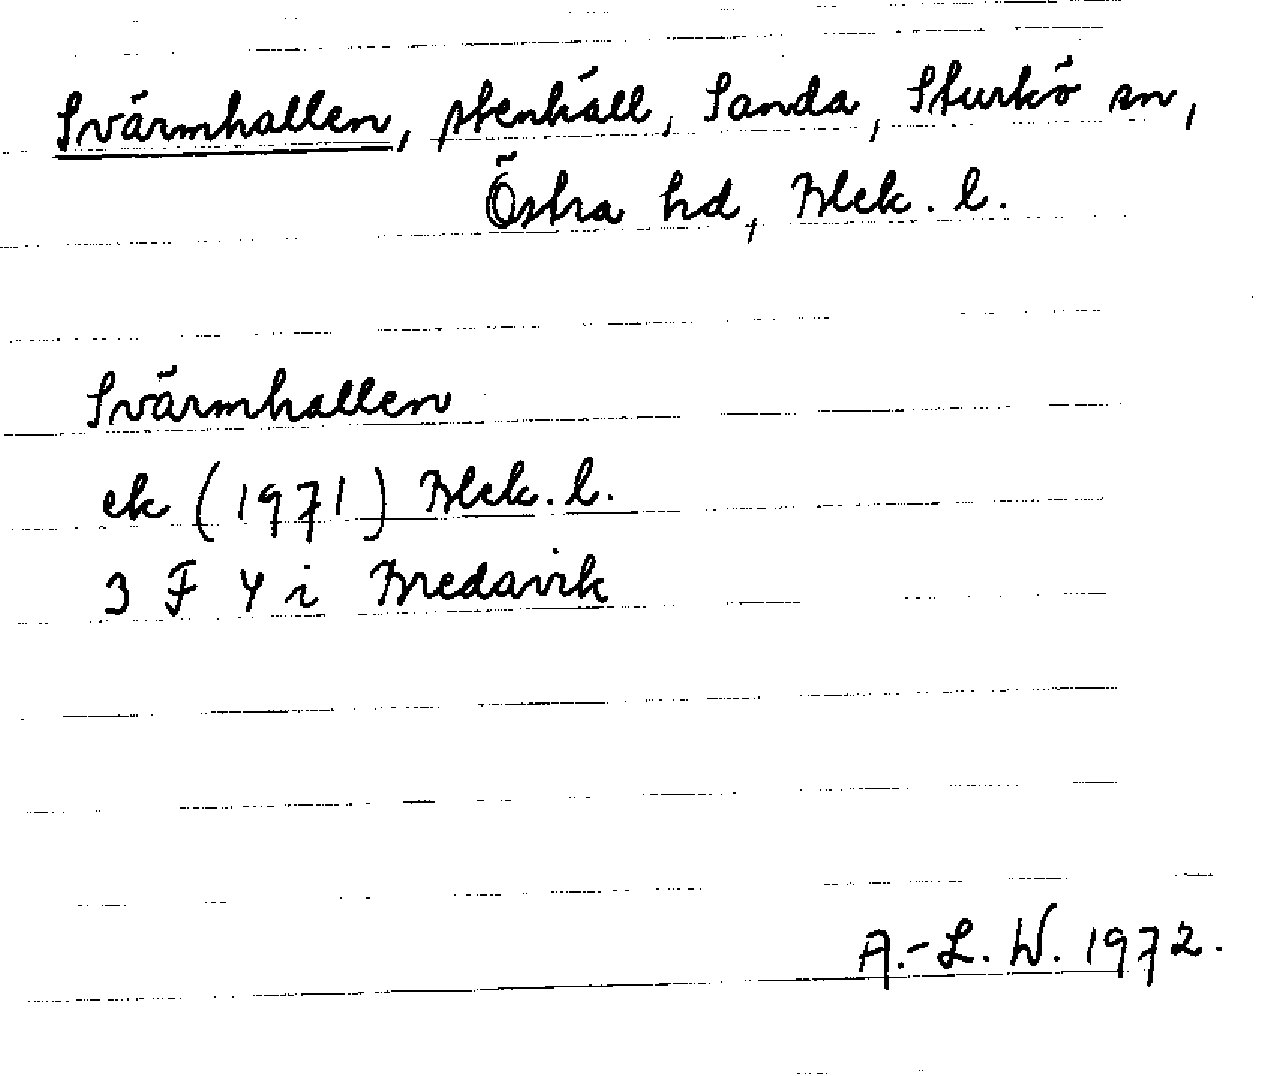 Svärmhallen, stenhäll, Sanda, Sturkö sn,
Östra hd, Blek. l.
Svärmhallen
ek (1971) Blek. l.
3 F 4 i Bredavik
A.-L. W. 1972.